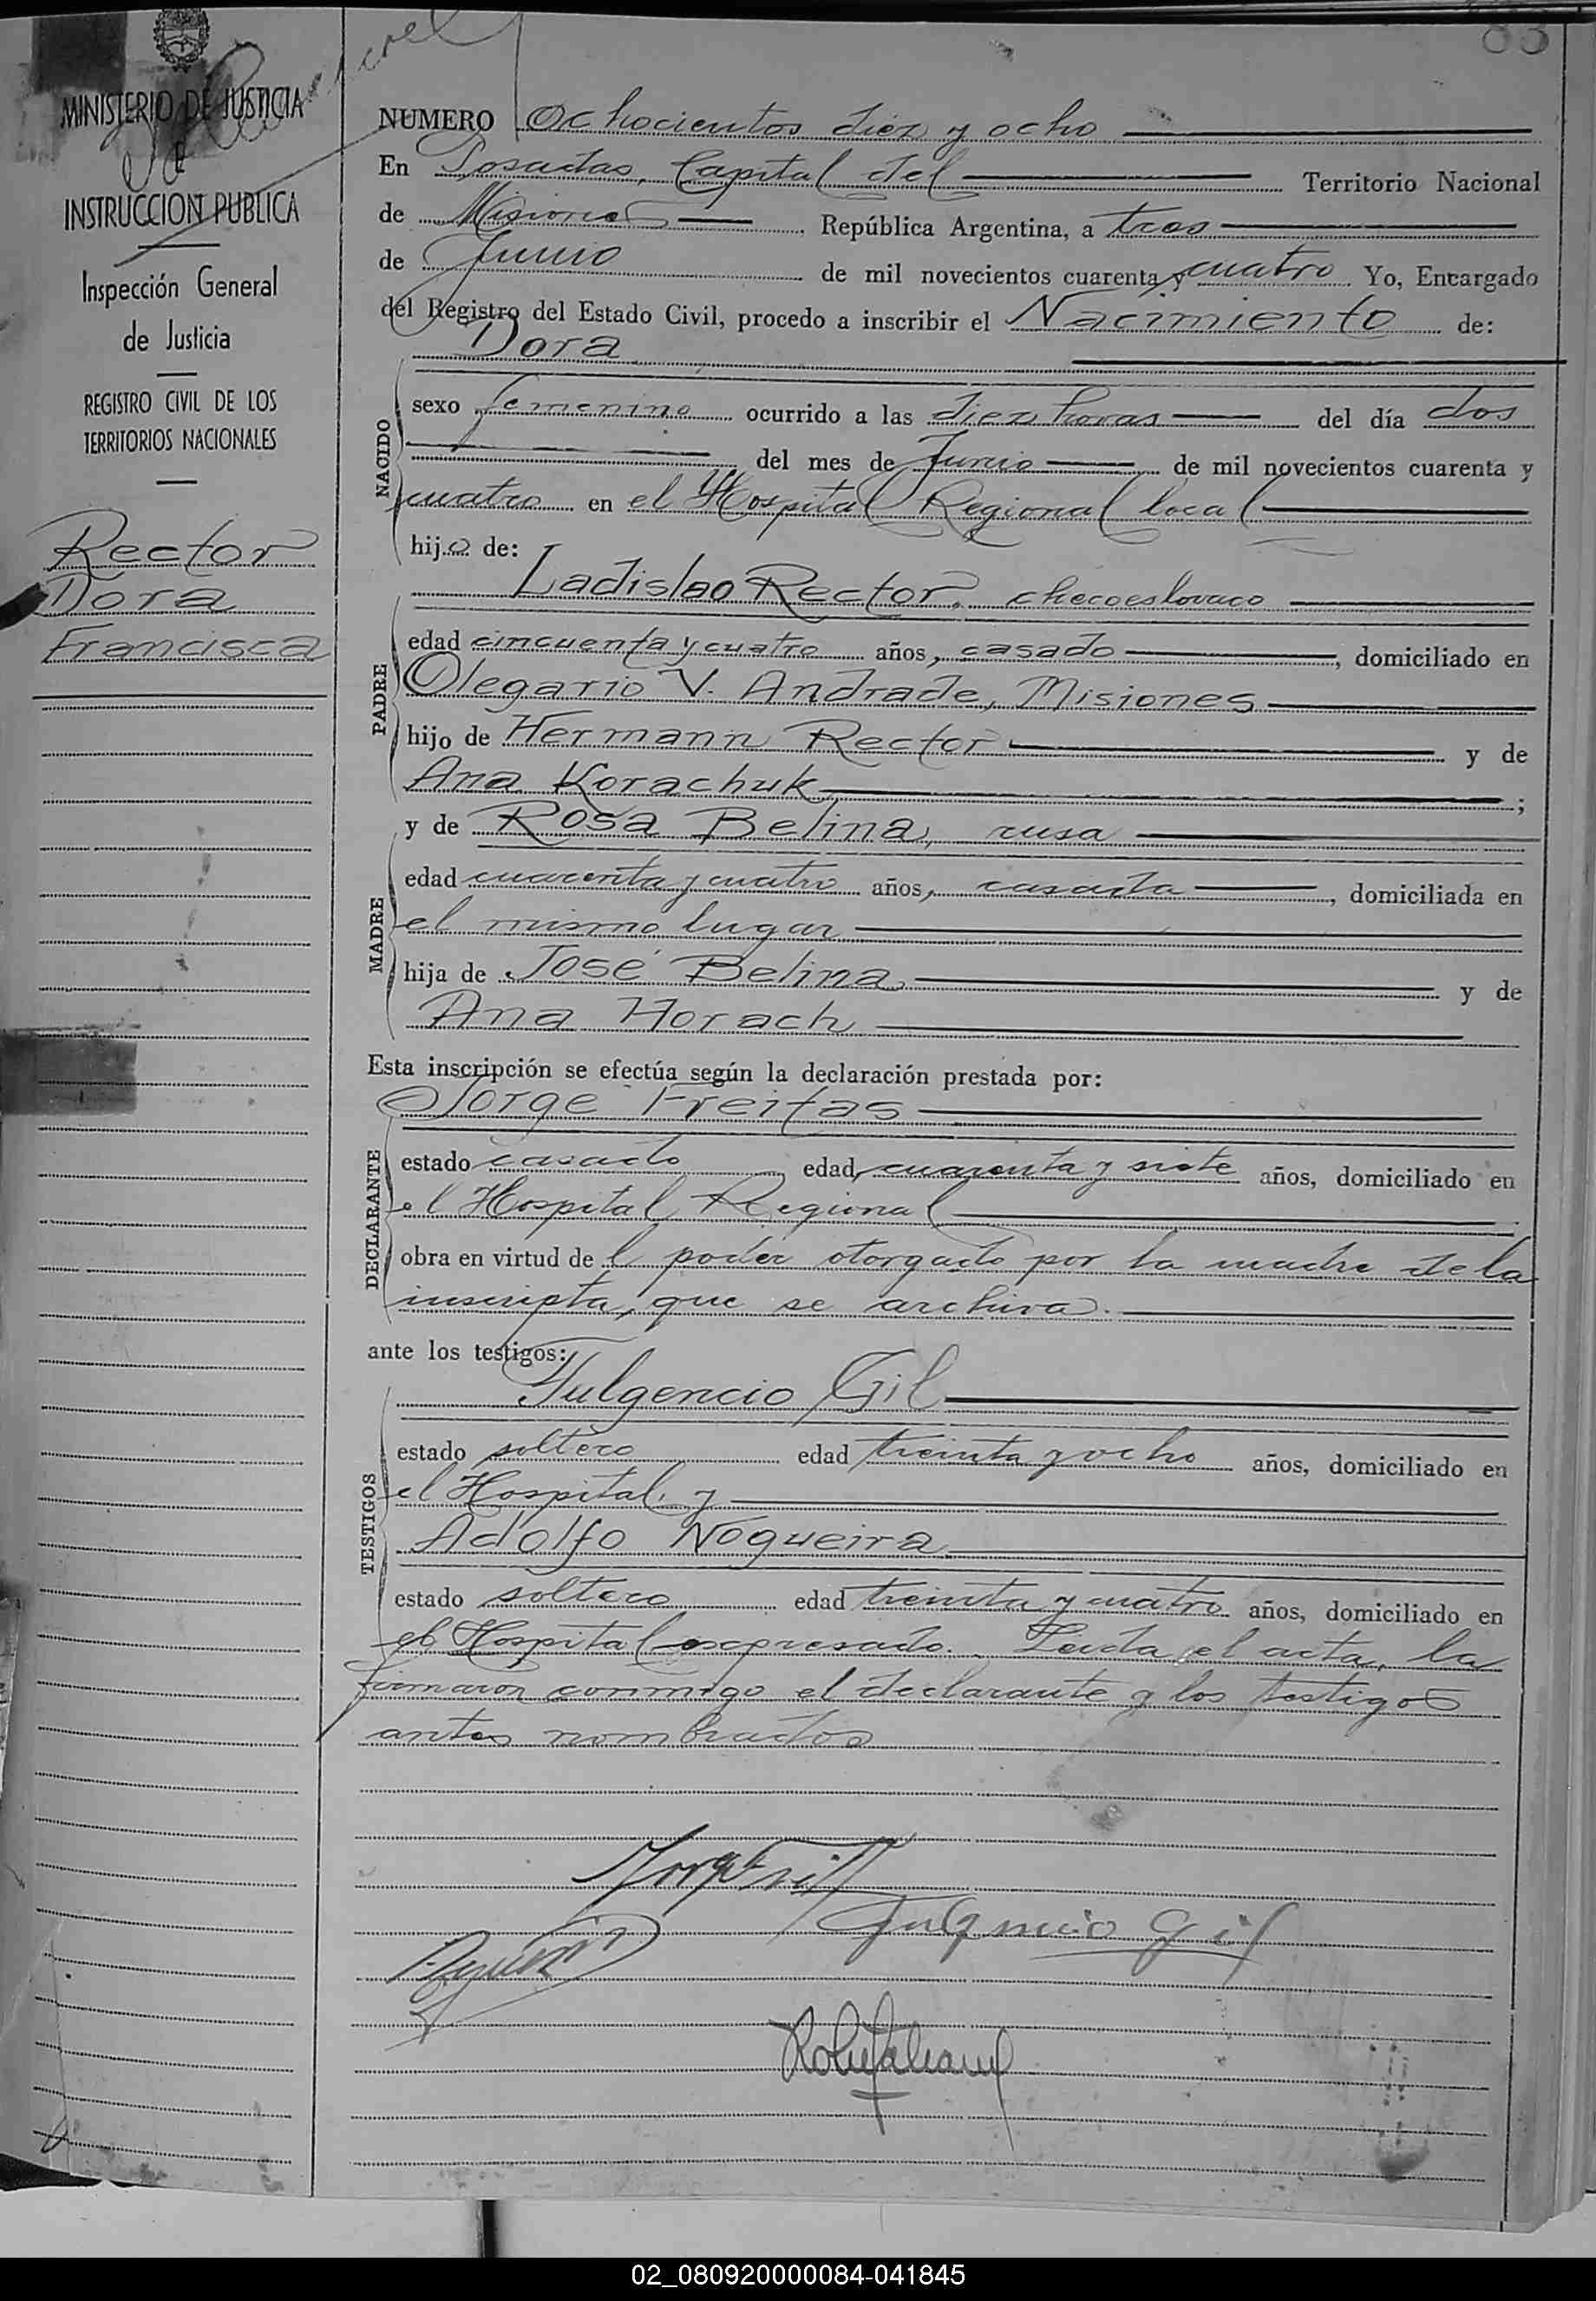 83
MINISTERIO DE JUSTICIA
E
INSTRUCCION PUBLICA
Inspección General
de Justicia
REGISTRO CIVIL DE LOS
TERRITORIOS NACIONALES
Rector
Dora
Francisca
NUMERO Ochocientos diez y ocho
En Posadas, Capital del Territorio Nacional
de Misiones República Argentina, a tres
de Junio de mil novecientos cuarenta y cuatro Yo, Encargado
del Registro del Estado Civil, procedo a inscribir el Nacimiento de:
Dora
NACIDO
sexo femenino ocurrido a las diez horas del día dos
del mes de Junio de mil novecientos cuarenta y
cuatro en el Hospital Regional local
hija de:
Ladislao Rector, checoeslovaco
PADRE
edad cincuenta y cuatro años, casado, domiciliado en
Olegario V. Andrade, Misiones
hijo de Hermann Rector y de
Ana Korachuk;
y de Rosa Belina, rusa
MADRE
edad cuarenta y cuatro años, casada, domiciliada en
el mismo lugar
hija de José Belina y de
Ana Horach
Esta inscripción se efectúa según la declaración prestada por:
Jorge Freitas
DECLARANTE
estado casado edad cuarenta y siete años, domiciliado en
el Hospital Regional
obra en virtud del poder otorgado por la madre de la
inscripta, que se archiva.
ante los testigos:
Fulgencio Gil
TESTIGOS
estado soltero edad treinta y ocho años, domiciliado en
el Hospital, y
Adolfo Nogueira
estado soltero edad treinta y cuatro años, domiciliado en
el Hospital expresado. Leida el acta, la
firmaron conmigo el declarante y los testigos
antes nombrados
Fulgencio Gil
02_080920000084-041845